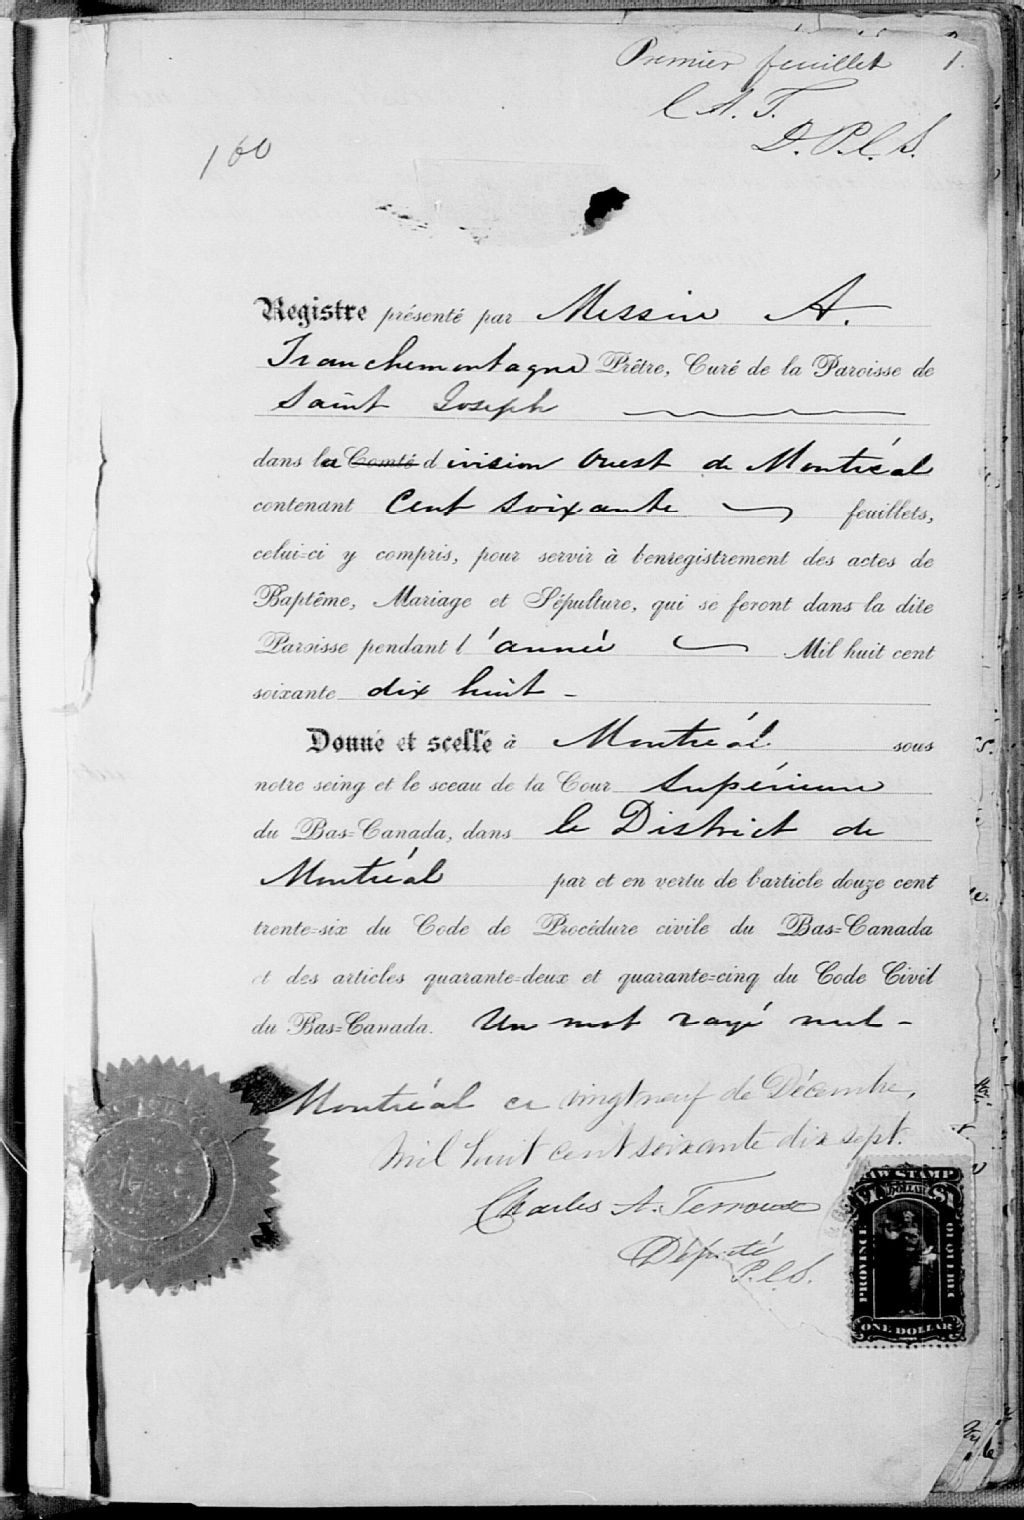 Premier feuillet 1.
C. A. T.
D. P. C. S.
160
Registre présenté par Messire A.
Tranchemontagne Prêtre, Curé de la Paroisse de
Saint Joseph
dans la Comté division Ouest de Montréal
contenant Cent soixante feuillets,
celui-ci y compris, pour servir à l'enregistrement des actes de
Baptême, Mariage et Sépulture, qui se feront dans la dite
Paroisse pendant l'année Mil huit cent
soixante dix huit -
Donné et scellé à Montréal sous
notre seing et le sceau de la Cour Supérieure
du Bas-Canada, dans le District de
Montréal par et en vertu de l'article douze cent
trente-six du Code de Procédure civile du Bas-Canada
et des articles quarante-deux et quarante-cinq du Code Civil
du Bas-Canada. Un mot rayé nul -
Montréal ce vingt neuf de Décembre,
mil huit cent soixante dix sept.
Charles A. Terroux
Député
P. C. S.
LAW STAMP
$1 DOLLAR $1
PROVINCE OF QUEBEC
ONE DOLLAR